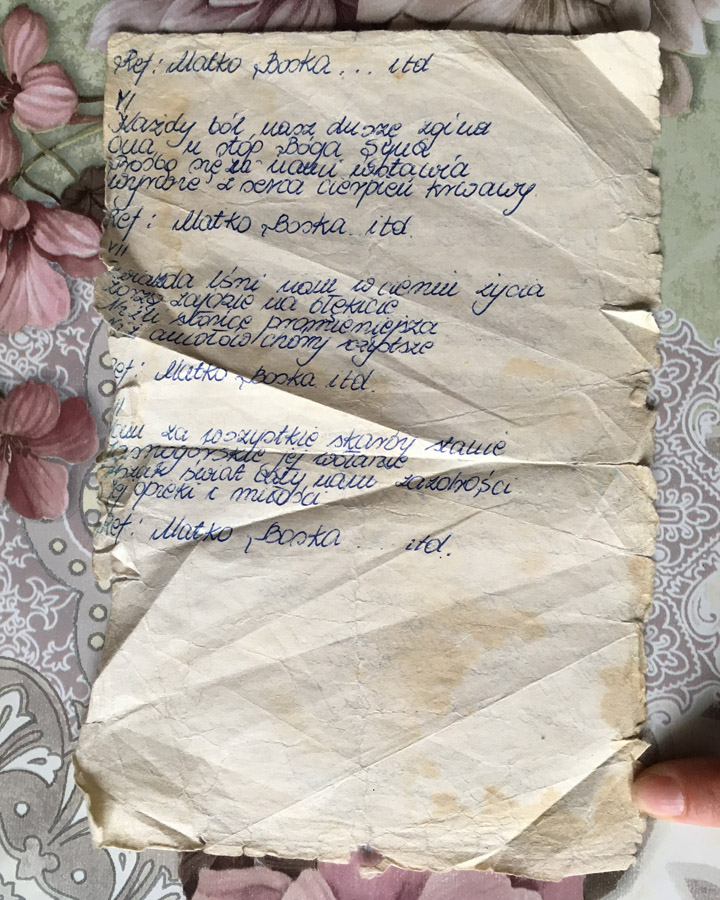 Ref: Matko Boska ... itd
VI
Każdy ból nasz duszę zgina
Ona u stóp Boga Syna
się za nami wstawia
z serca cierpień krwawy.
Ref: Matko Boska.. itd.
VII
lśni nam w cieniu życia
zajdzie na błękicie
słońce promieniejsza
aniołów chóry
Ref: Matko Boska itd.
za wszystkie skarby stanie
jej wołanie
świat cały nam zazdrości
Jej opieki i miłości
Ref: Matko Boska ... itd.